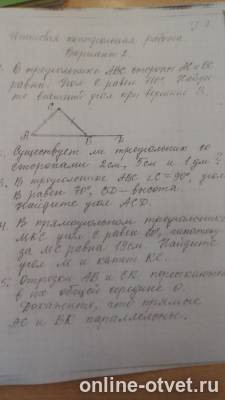 Итоговая контрольная работа
Вариант 2.
В треугольнике ABC стороны AC и BC
равны. Угол C равен Найди-
те внешний угол при вершине B.
C
A B
Существует ли треугольник со
сторонами 2см, 5см и 1дм?
3. В треугольнике ABC ∠C = 90°, угол
B равен 70°, CD - высота.
Найдите угол ACD.
4. В прямоугольном треугольнике
MKC угол C равен 60°,
за MC равна 19см. Найдите
угол M и катет KC.
5. Отрезки AB и CK пересекаются
в их общей середине O.
Докажите, что прямые
AC и BK параллельны.
online-otvet.ru